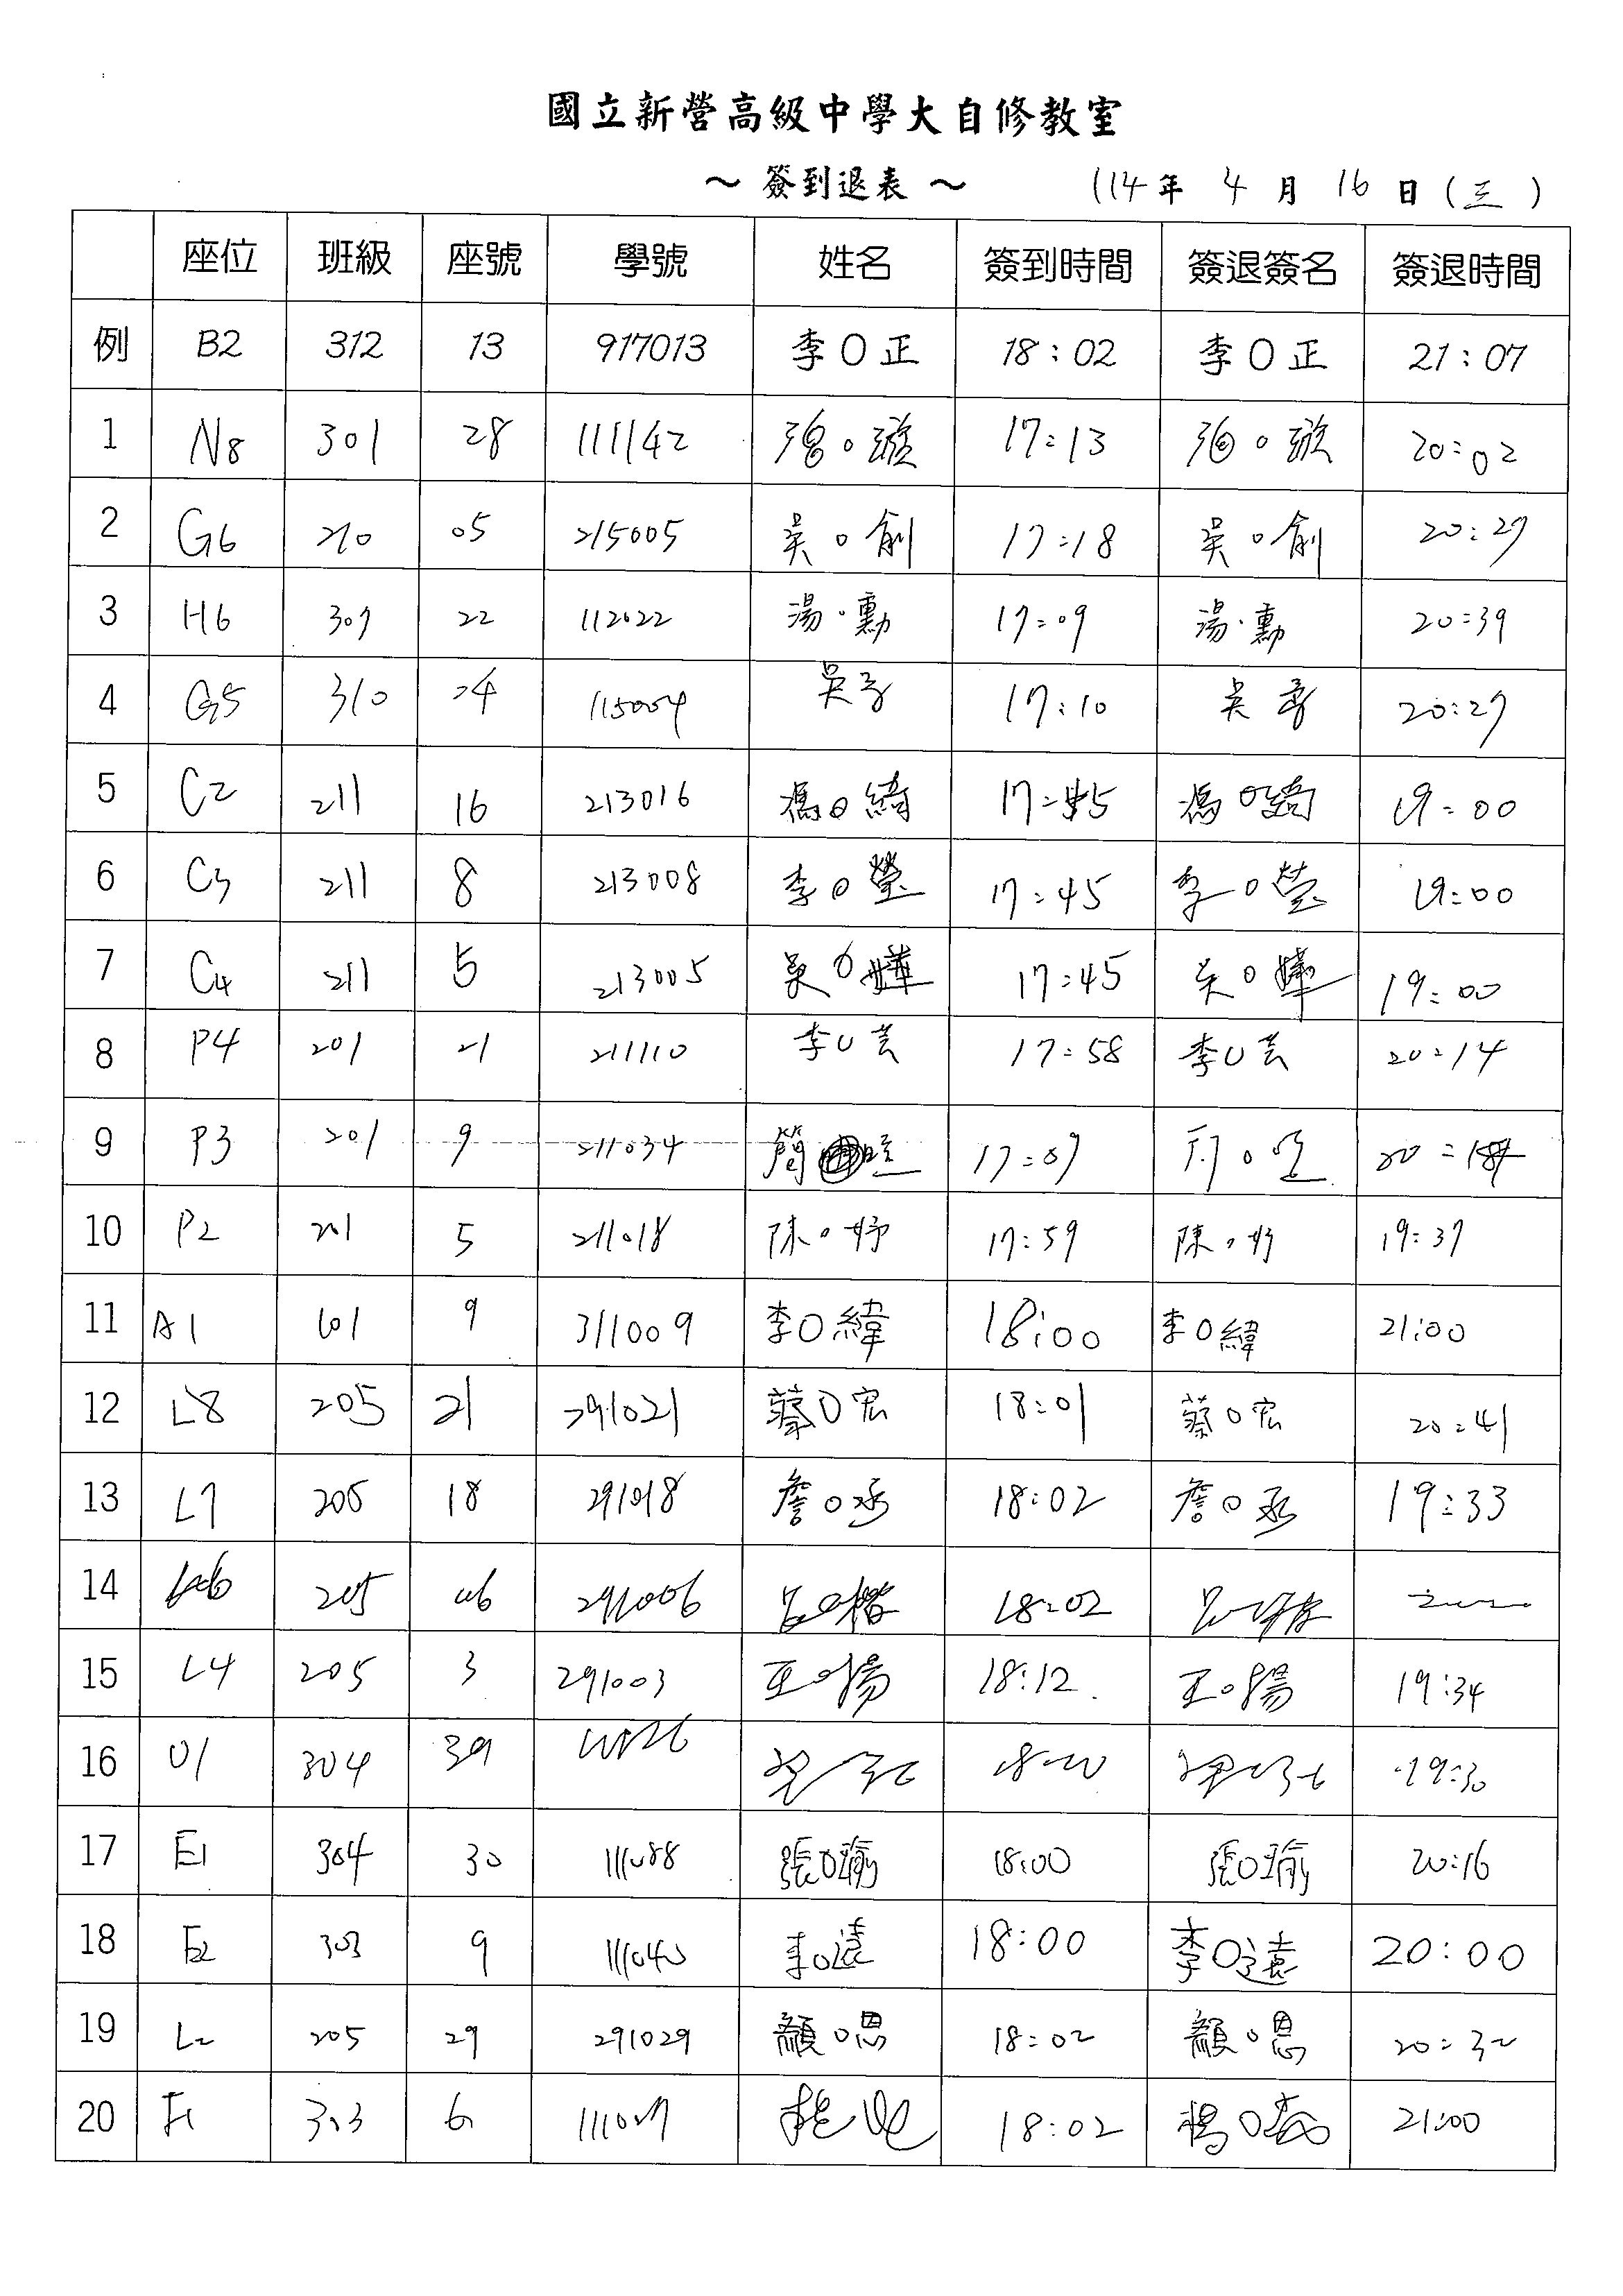 國立新營高級中學大自修教室
～ 簽到退表 ～ 114年 4 月 16 日(三)
座位 班級 座號 學號 姓名 簽到時間 簽退簽名 簽退時間
例 B2 312 13 917013 李O正 18:02 李O正 21:07
1 N8 301 28 111142 17:13 20:02
2 G6 210 05 215005 吳O創 17:18 吳O創 20:27
3 H6 307 22 112022 湯·勳 17:09 湯·勳 20:39
4 G5 310 04 115004 吳 17:10 吳 20:27
5 C2 211 16 213016 馮O綺 17:45 馮O綺 19:00
6 C3 211 8 213008 李O瑩 17:45 李O瑩 19:00
7 C4 211 5 213005 吳O嬅 17:45 吳O嬅 19:00
8 P4 201 21 211110 李O芸 17:58 李O芸 20:14
9 P3 201 9 211034 簡 17:07
10 P2 201 5 211018 陳O妤 17:59 陳O妤 19:37
11 A1 101 9 311009 李O緯 18:00 李O緯 21:00
12 L8 205 21 291021 蔡O宏 18:01 蔡O宏 20:41
13 L7 205 18 291018 詹O丞 18:02 詹O丞 19:33
14 205 06 291006 18:02
15 L4 205 3 291003 王O陽 18:12 王O陽 19:34
16 O1 304 39 19:30
17 E1 304 30 111088 張O瑜 18:00 張O瑜 20:16
18 E2 303 9 111040 李O遠 18:00 李O遠 20:00
19 L2 205 29 291029 顏O恩 18:02 顏O恩 20:32
20 F1 303 6 18:02 楊O 21:00